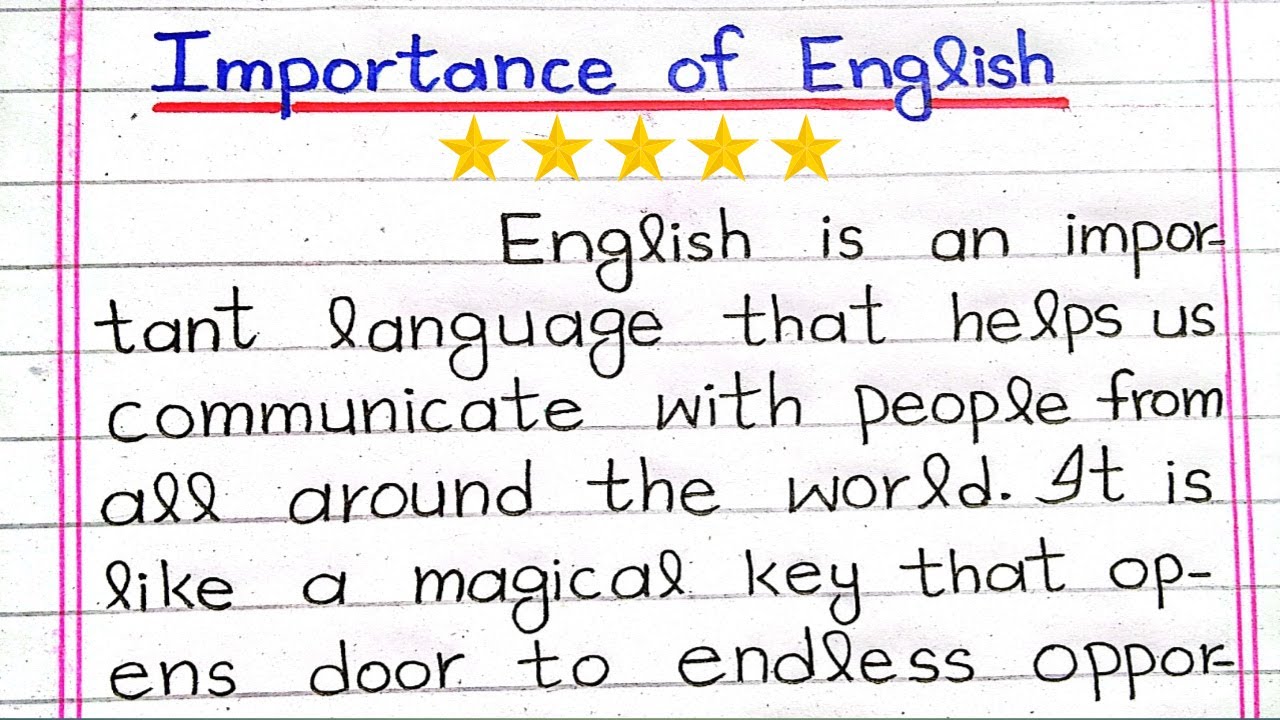 Importance of English
English is an impor-
tant language that helps us
communicate with people from
all around the world. It is
like a magical key that op-
ens door to endless oppor-